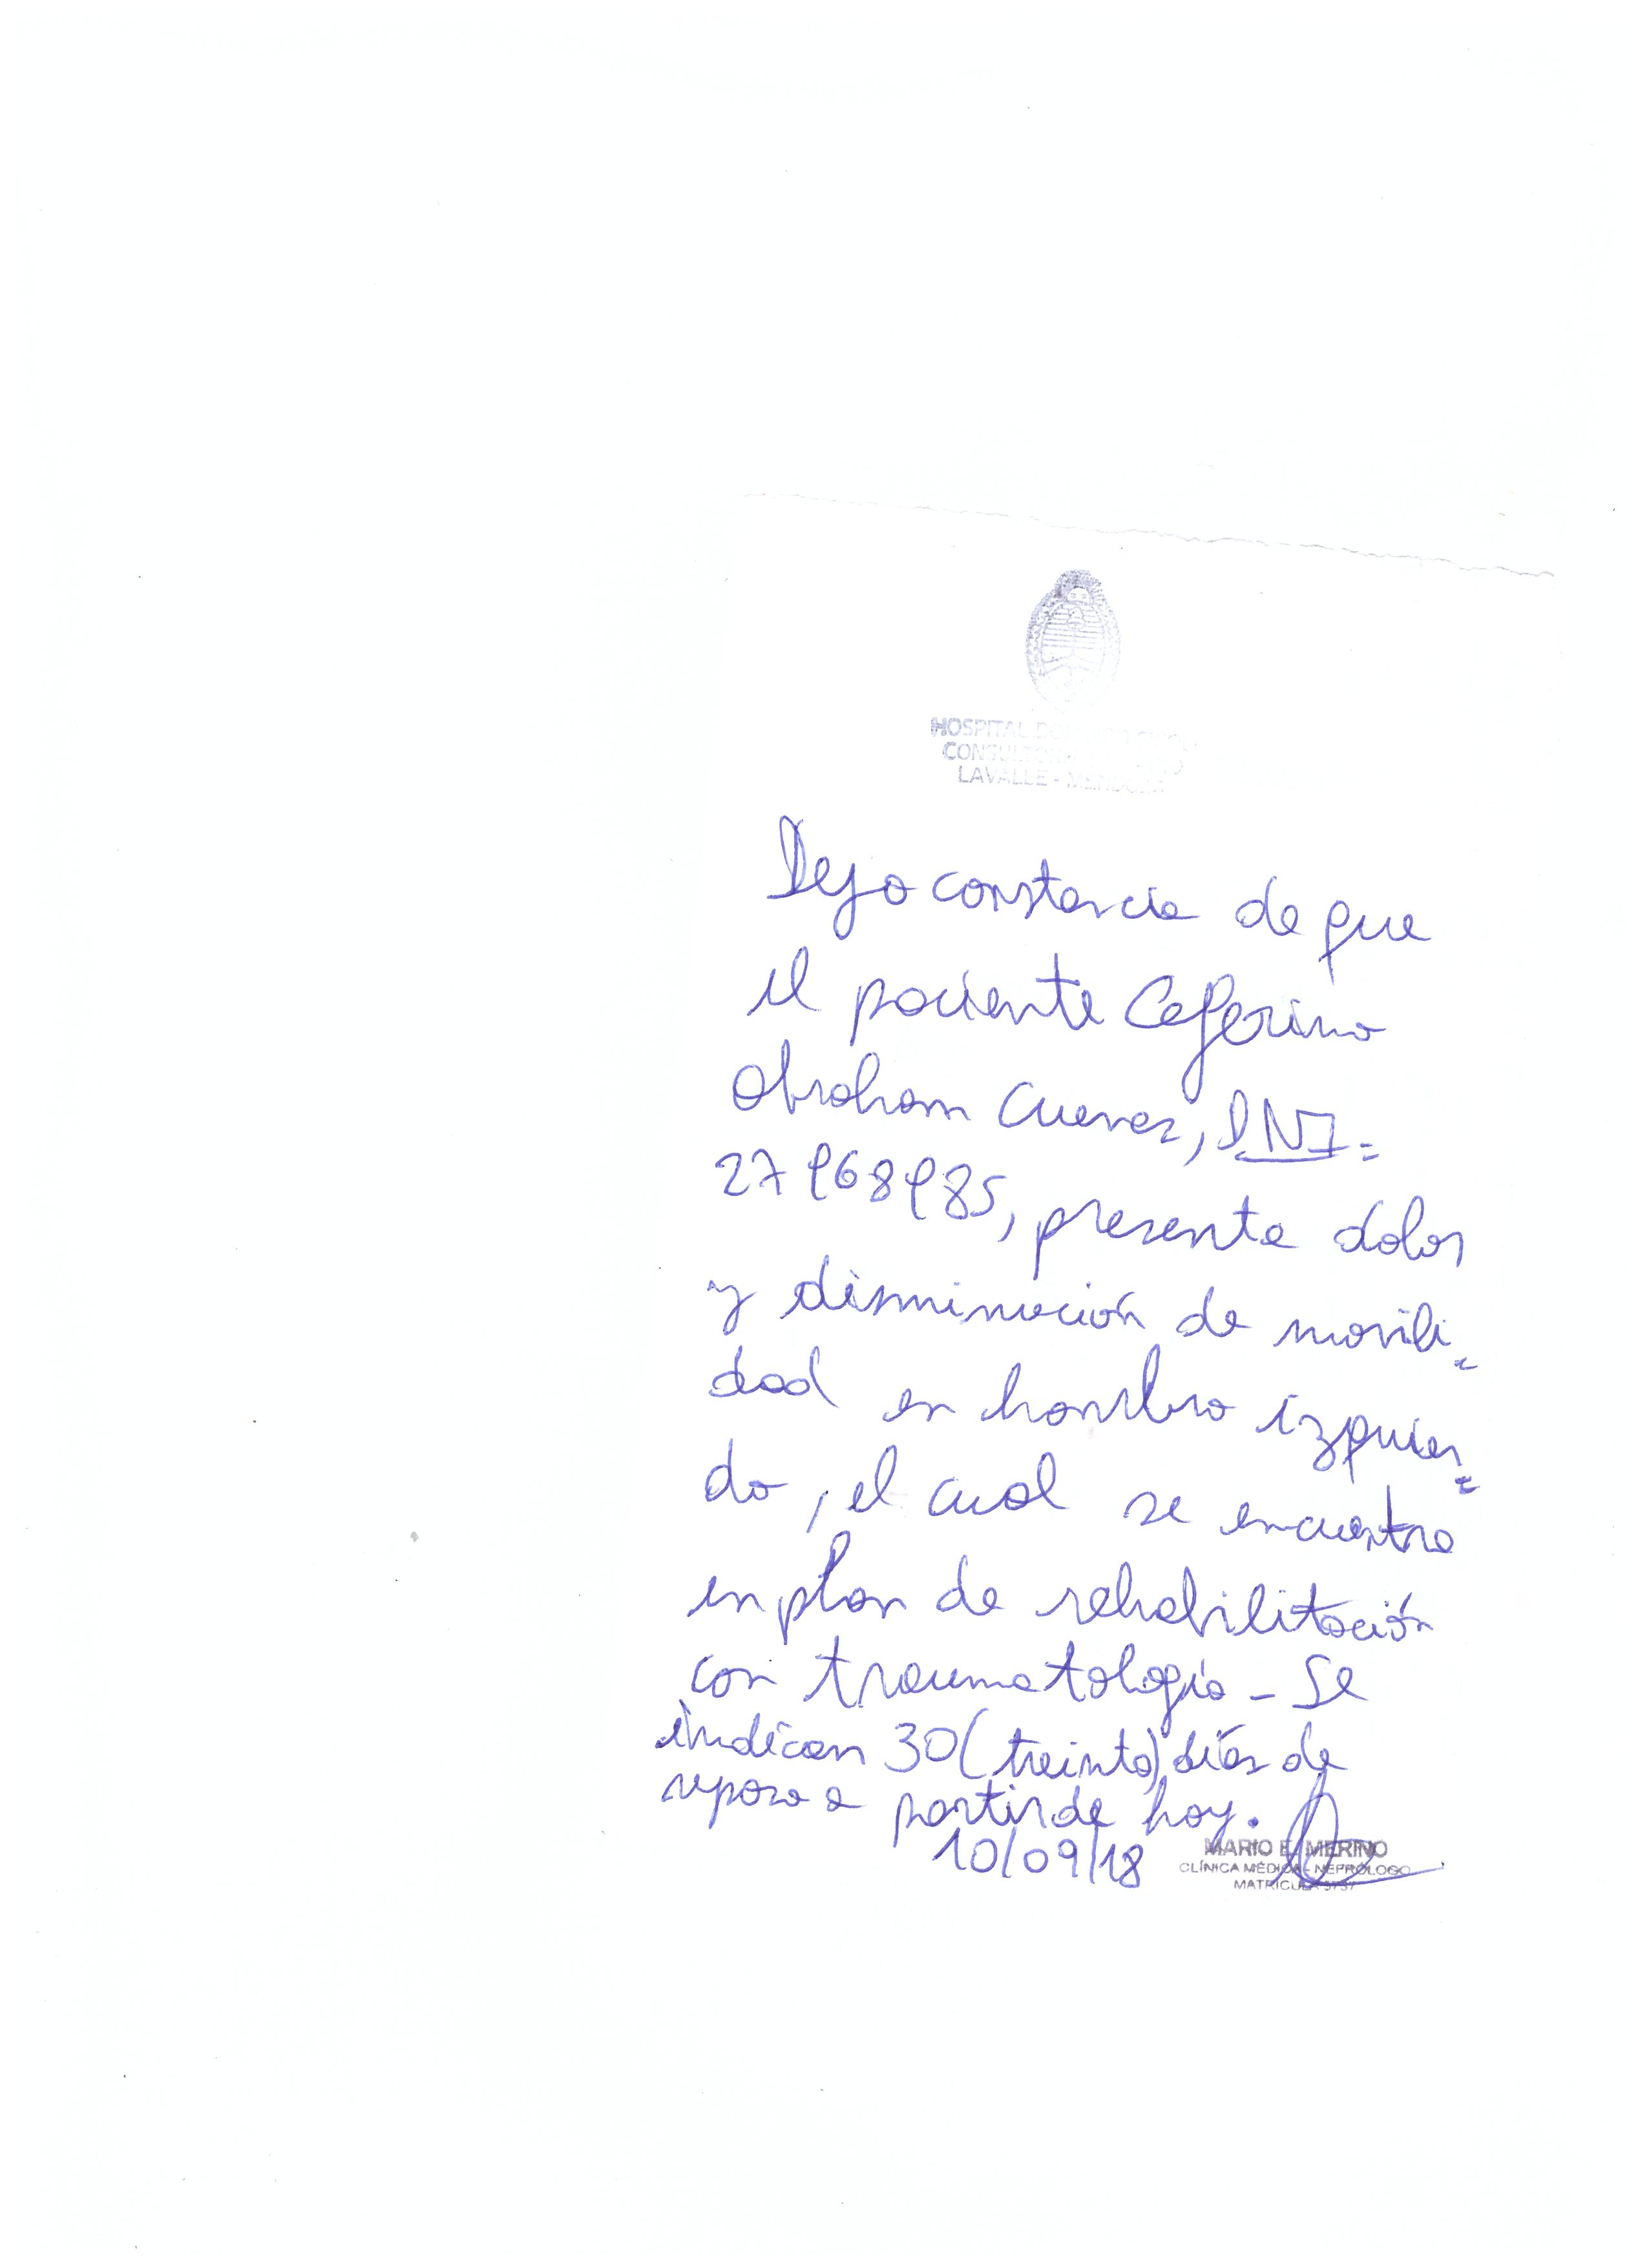 HOSPITAL
LAVALLE - MENDOZA
Dejo constancia de que
el paciente Ceferino
Abraham Cuevas, DNI=
27968985, presenta dolor
y disminución de movili=
dad en hombro izquier=
do, el cual se encuentra
en plan de rehabilitación
con traumatología - Se
indican 30 (treinta) días de
reposo a partir de hoy.
10/09/18
MARIO E. MERINO
CLÍNICA MÉDICA - NEFRÓLOGO
MATRÍCULA